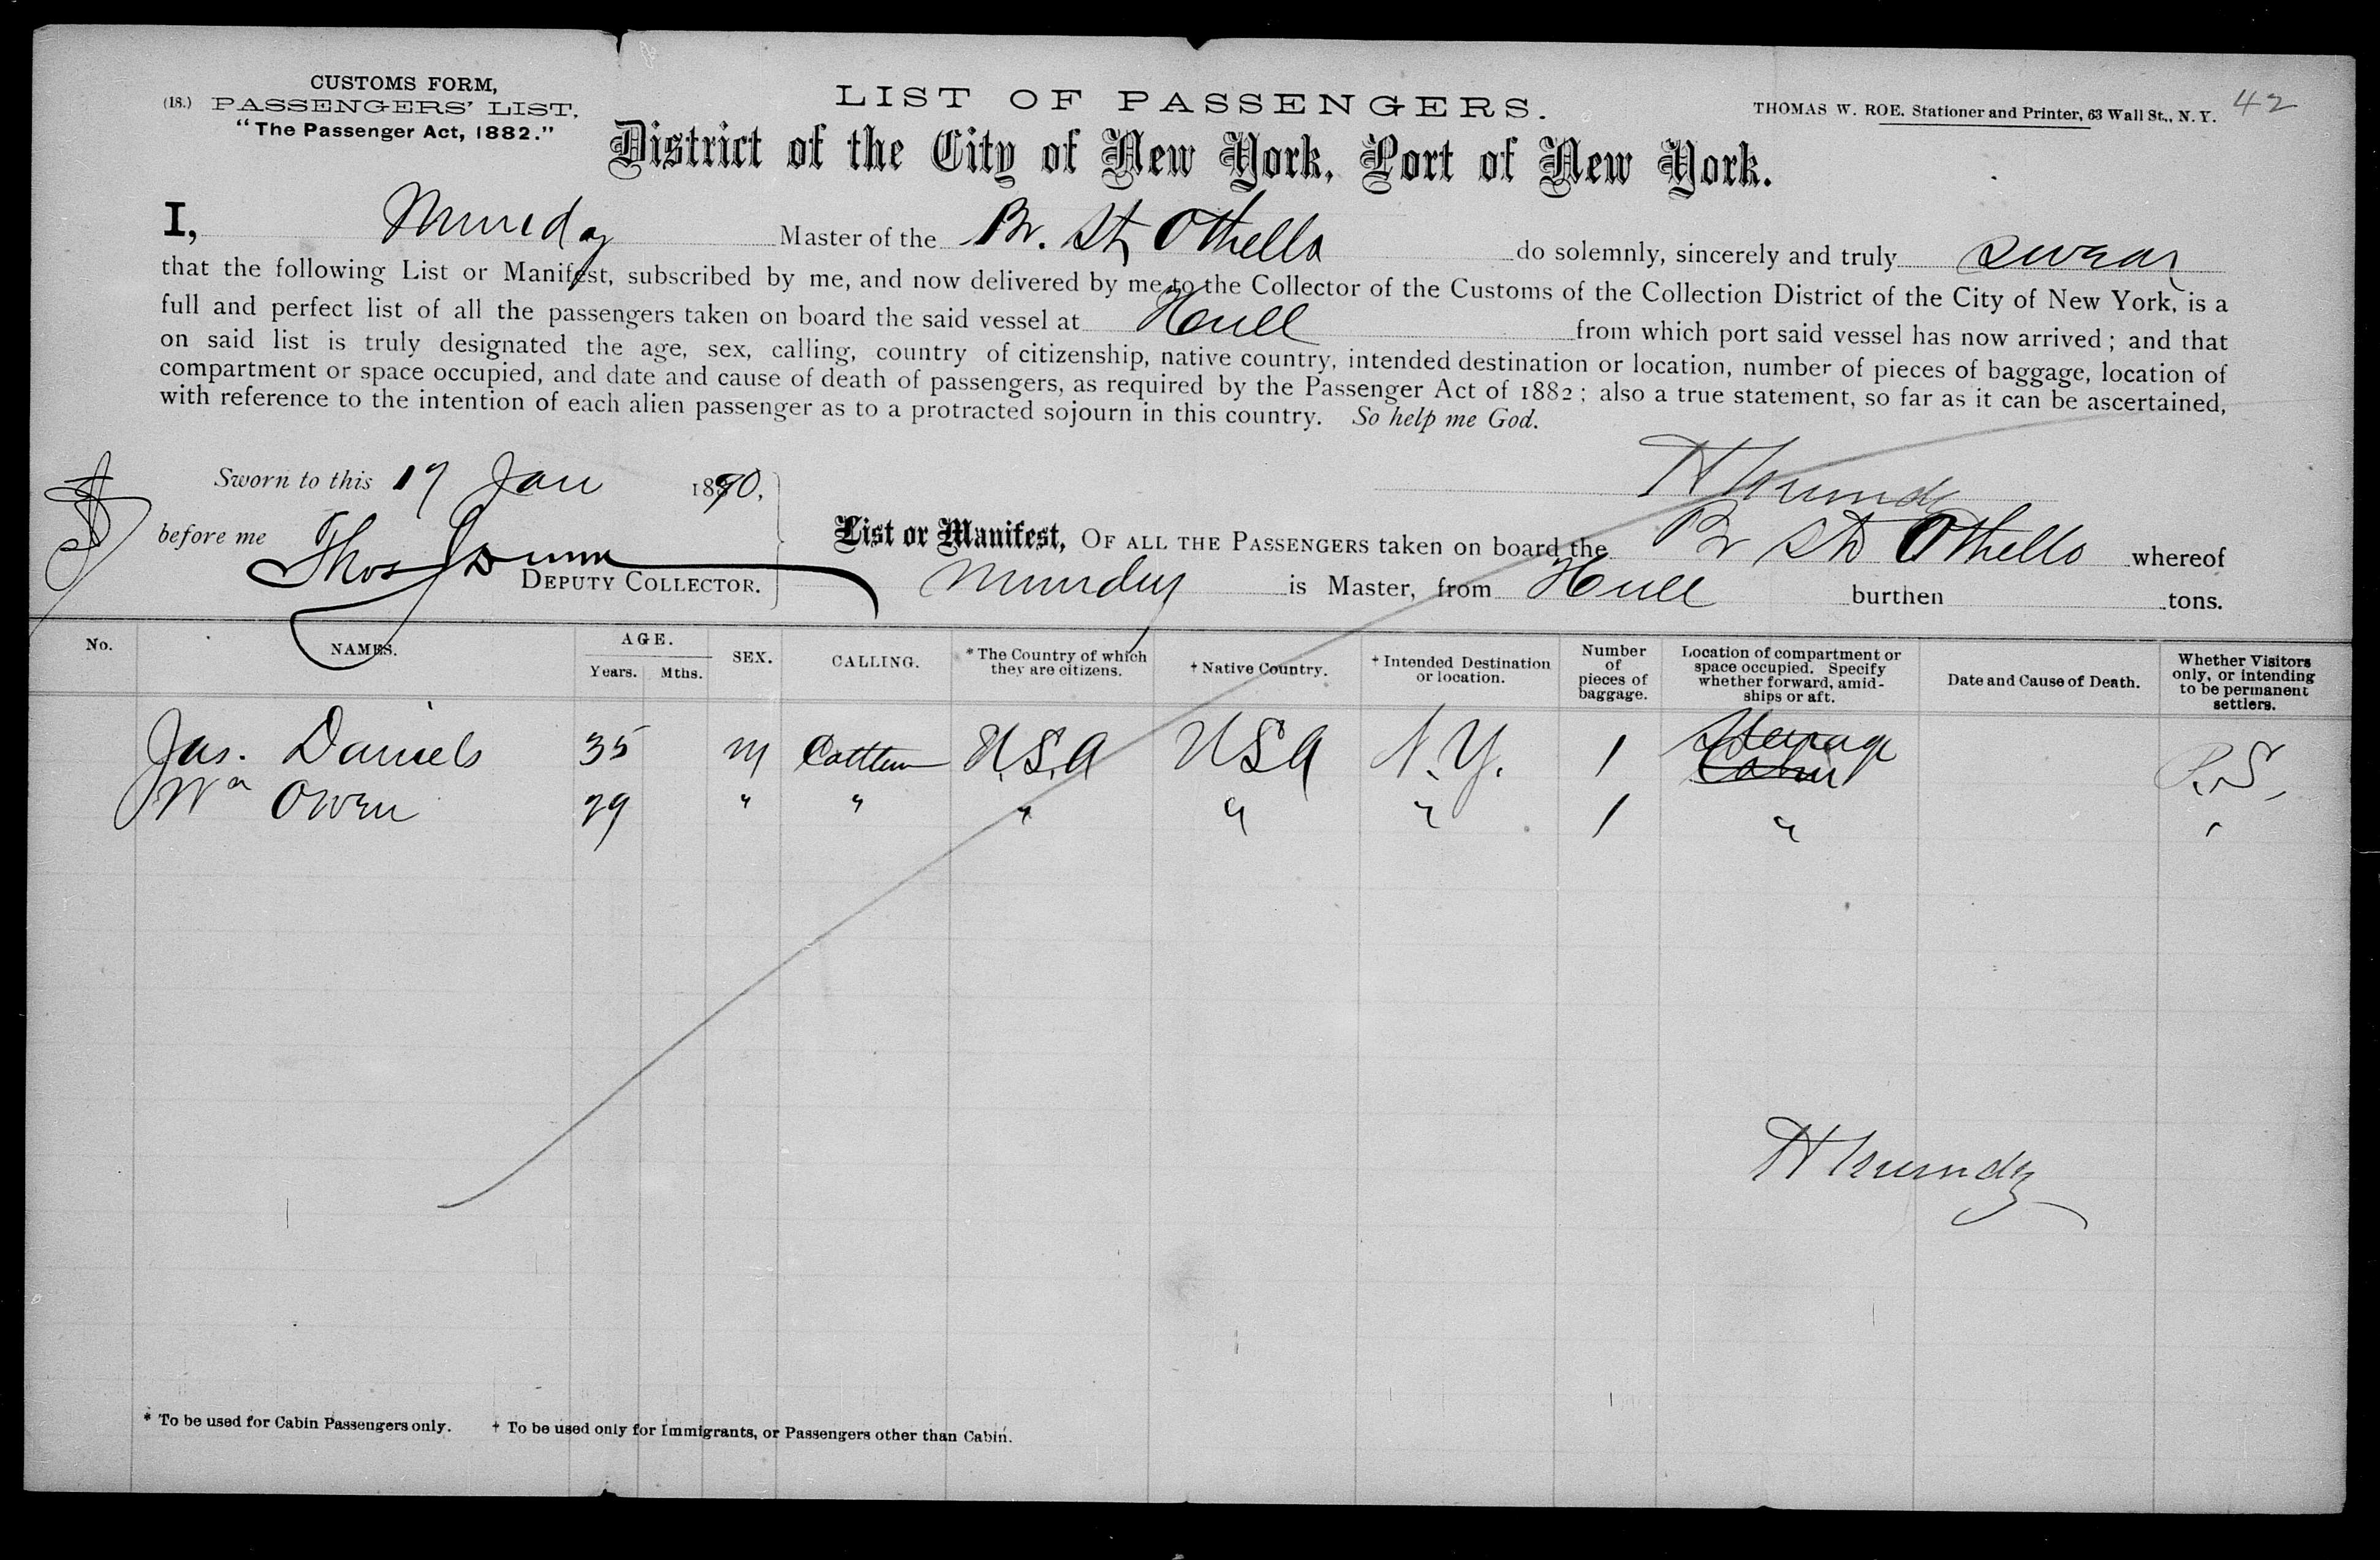 CUSTOMS FORM,
(18.) PASSENGERS' LIST.
"The Passenger Act, 1882."
LIST OF PASSENGERS.
THOMAS W. ROE. Stationer and Printer, 63 Wall St., N.Y. 42
District of the City of New York, Port of New York.
I, Munday Master of the Br. St Othello do solemnly, sincerely and truly swear
that the following List or Manifest, subscribed by me, and now delivered by me to the Collector of the Customs of the Collection District of the City of New York, is a
full and perfect list of all the passengers taken on board the said vessel at Hull from which port said vessel has now arrived; and that
on said list is truly designated the age, sex, calling, country of citizenship, native country, intended destination or location, number of pieces of baggage, location of
compartment or space occupied, and date and cause of death of passengers, as required by the Passenger Act of 1882; also a true statement, so far as it can be ascertained,
with reference to the intention of each alien passenger as to a protracted sojourn in this country. So help me God.
Sworn to this 17 Jan 1890,
H Mundy
before me Thos Dunn
DEPUTY COLLECTOR.
List or Manifest, OF ALL THE PASSENGERS taken on board the Br Str Othello whereof
Munday is Master, from Hull burthen tons.
No. NAMES. AGE. Years. Mths. SEX. CALLING. * The Country of which they are citizens. † Native Country. † Intended Destination or location. Number of pieces of baggage. Location of compartment or space occupied. Specify whether forward, amidships or aft. Date and Cause of Death. Whether Visitors only, or intending to be permanent settlers.
Jas. Daniels 35 M Cattlem U.S.A USA N.Y. 1 Steerage Cabin P.S.
Wm Owen 29 " " " " " 1 " "
H Mundy
* To be used for Cabin Passengers only. † To be used only for Immigrants, or Passengers other than Cabin.